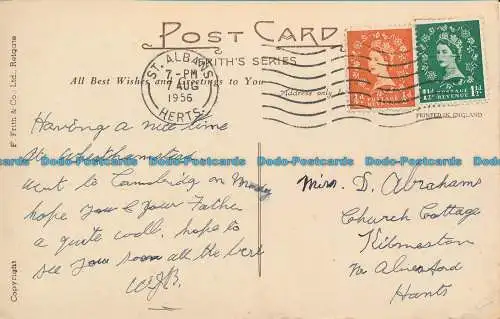 POST CARD
FRITH'S SERIES
All Best Wishes and Greetings to You
Address only
ST. ALBANS
7-PM
7 AUG
1956
HERTS.
POSTAGE
REVENUE
½d
POSTAGE
REVENUE
1½d
PRINTED IN ENGLAND
F. Frith & Co. Ltd., Reigate
Copyright
Having a nice time
at Wheathampstead
went to Cambridge on Monday
hope you & your Father
a quite well. hope to
see you soon all the best
WJB.
Miss. D. Abrahams
Church Cottage
Kilmeston
Nr Alresford
Hants
Dodo-Postcards Dodo-Postcards Dodo-Postcards Dodo-Postcards Dodo-Postcards